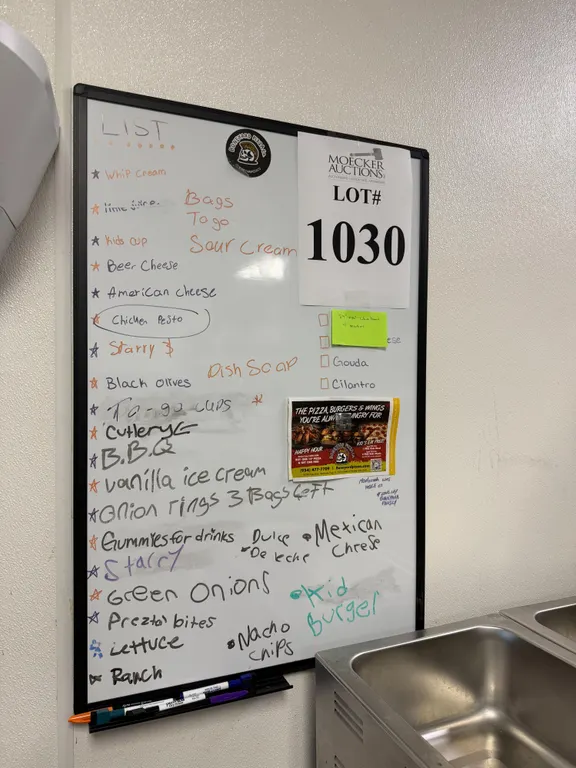 LIST
MOECKER
AUCTIONS
LOT#
1030
Whip Cream
Bags
Togo
Kids cup
Sour Cream
Beer Cheese
American cheese
Chicken Pesto
Starry 3
Gouda
Dish Soap
Black olives
Cilantro
To-go cups
Cutlery
B.B.Q
THE PIZZA, BURGERS & WINGS
YOU'RE ALWAYS HUNGRY FOR!
HAPPY HOUR
vanilla ice cream
Onion rings 3 Bags Left
Gummies for drinks
Dulce
De leche
Mexican
Cheese
Starry
Green Onions
Kid
Burger
Preztol bites
Lettuce
Nacho
chips
Ranch